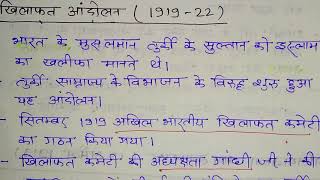 खिलाफत आंदोलन (1919-22)
भारत के मुसलमान तुर्की के सुल्तान को इस्लाम
का खलीफा मानते थे।
- तुर्की साम्राज्य के विभाजन के विरुद्ध शुरू हुआ
यह आंदोलन।
- सितम्बर 1919 अखिल भारतीय खिलाफत कमेटी
का गठन किया गया।
- खिलाफत कमेटी की अध्यक्षता गांधी जी ने की